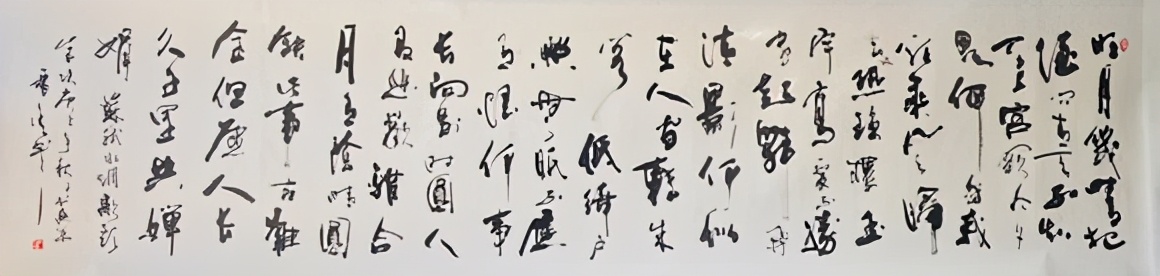 明月幾時有把
酒问青天不知
天上宫阙今夕
是何年我
欲乘风歸
去又恐瓊樓玉
宇高處不勝
寒起舞弄
清影何似
在人间轉朱
阁低綺户
照無眠不應
有恨何事
长向别时圓人
有悲歡離合
月有陰晴圓
缺此事古難
全但愿人长
久千里共嬋
娟 蘇軾水调歌头